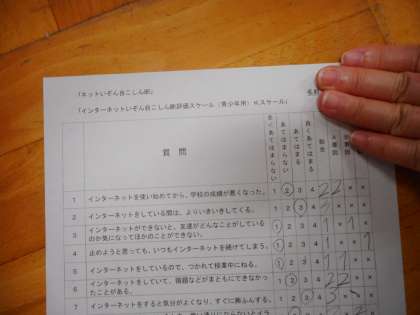 「ネットいぞん自こしん断」
「インターネットいぞん自こしん断評価スケール（青少年用）Kスケール」
質 問
全くあてはまらない
あてはまらない
あてはまる
良くあてはまる
総合
A要因
1 インターネットを使い始めてから、学校の成績が悪くなった。 1 2 3 4 22 × ×
2 インターネットをしている間は、よりいきいきしてくる。 1 2 3 4
3 インターネットができないと、友達がどんなことがしている
のか気になってほかのことができない。 1 2 3 4 1 1 ×
4 止めようと思っても、いつもインターネットを続けてしまう。 1 2 3 4
5 インターネットをしているので、つかれて授業中にねる。 1 2 3 4 1 1 × ×
6 インターネットをしていて、宿題などがまともにできなかっ
たことがある。 1 2 3 4 22 × ×
7 インターネットをすると気分がよくなり、すぐに興ふんする。 1 2 3 4